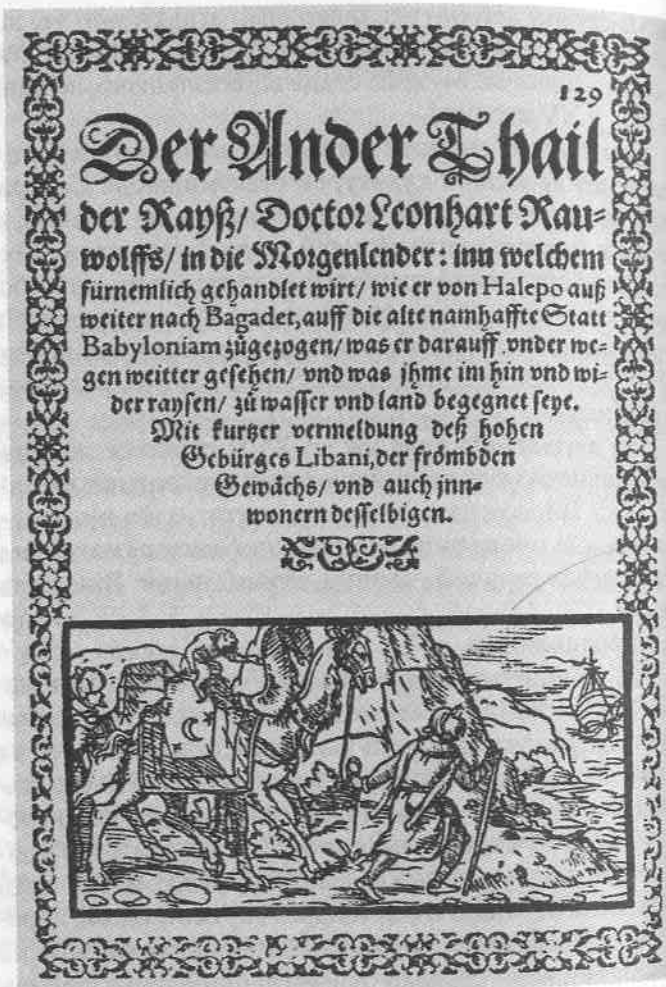 129
Der Ander Thail
der Rayß/ Doctor Leonhart Rau=
wolffs/ in die Morgenlender: inn welchem
fürnemlich gehandlet wirt/ wie er von Halepo auß
weiter nach Bagadet, auff die alte namhaffte Statt
Babyloniam zůgezogen/ was er darauff vnder we=
gen weitter gesehen/ vnd was jhme im hin vnd wi=
der raysen/ zů wasser vnd land begegnet seye.
Mit kurtzer vermeldung deß hohen
Gebürges Libani, der frömbden
Gewächs/ vnd auch jnn=
wonern desselbigen.